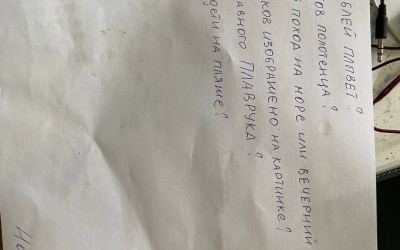 БЛЕЙ ПЛЫВЕТ?
ОВ ПОЛОТЕНЦА?
Й ПОХОД НА МОРЕ ИЛИ ВЕЧЕРНИЙ
КОВ ИЗОБРАЖЕНО НА КАРТИНКЕ?
АВНОГО ПЛАВРУКА?
ДЕТИ НА ПЛЯЖЕ?